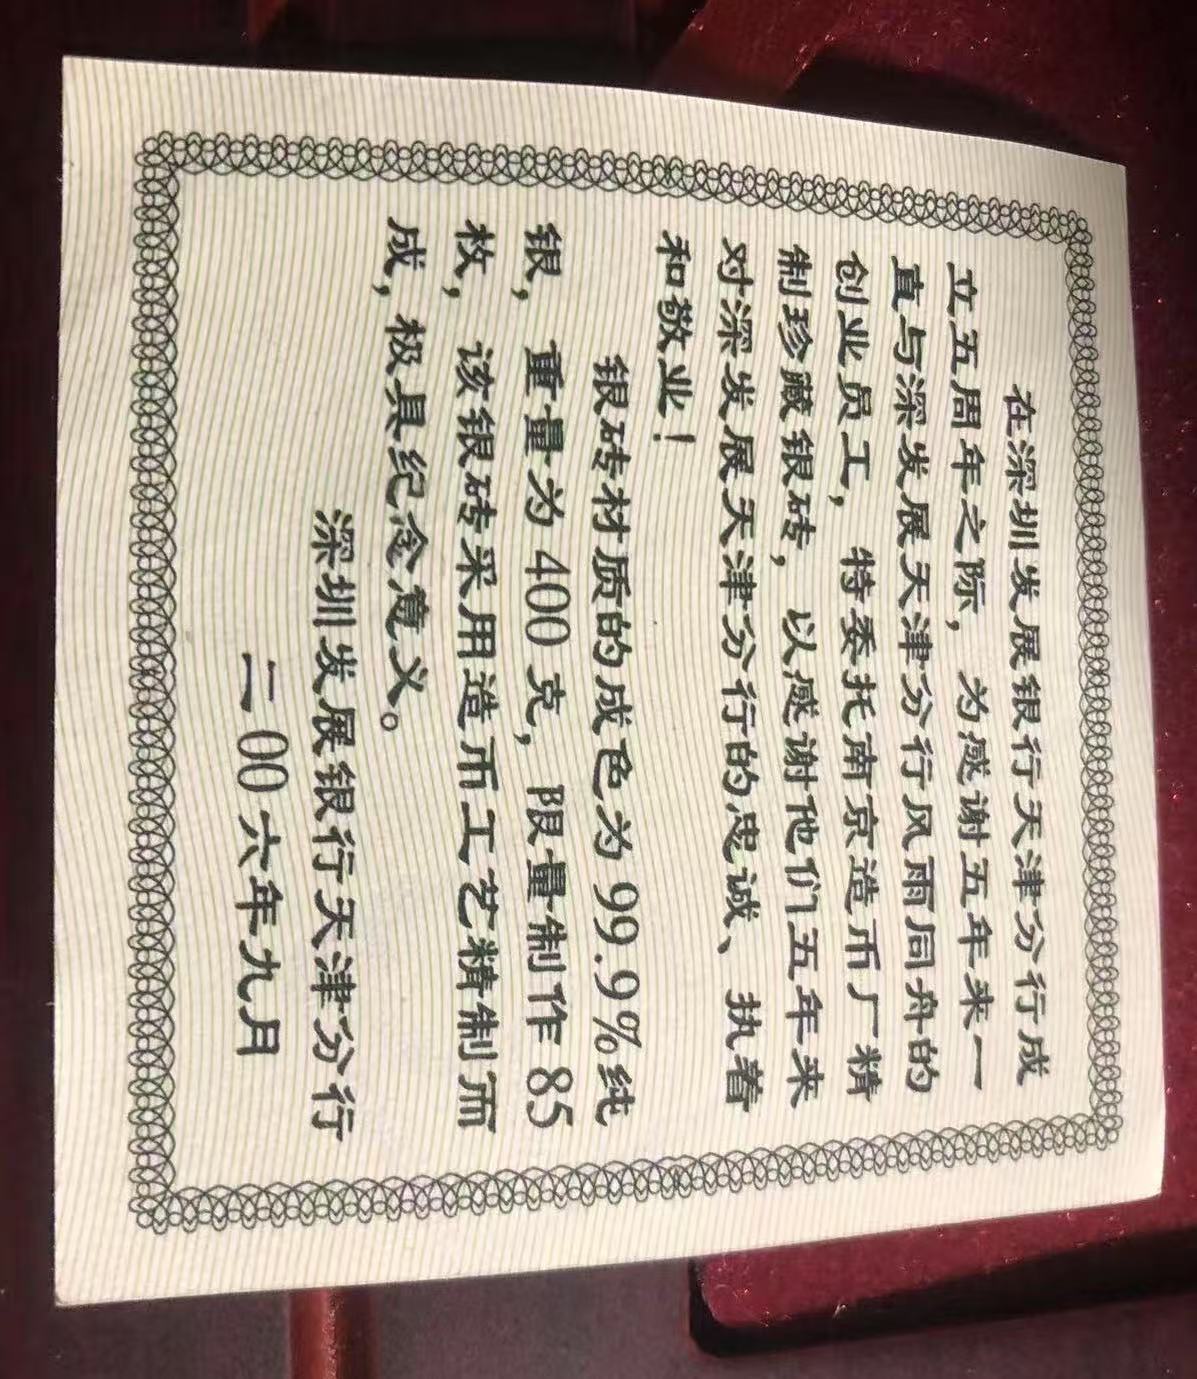 在深圳发展银行天津分行成
立五周年之际，为感谢五年来一
直与深发展天津分行风雨同舟的
创业员工，特委托南京造币厂精
制珍藏银砖，以感谢他们五年来
对深发展天津分行的忠诚、执着
和敬业！
银砖材质的成色为99.9%纯
银，重量为400克，限量制作85
枚，该银砖采用造币工艺精制而
成，极具纪念意义。
深圳发展银行天津分行
二00六年九月